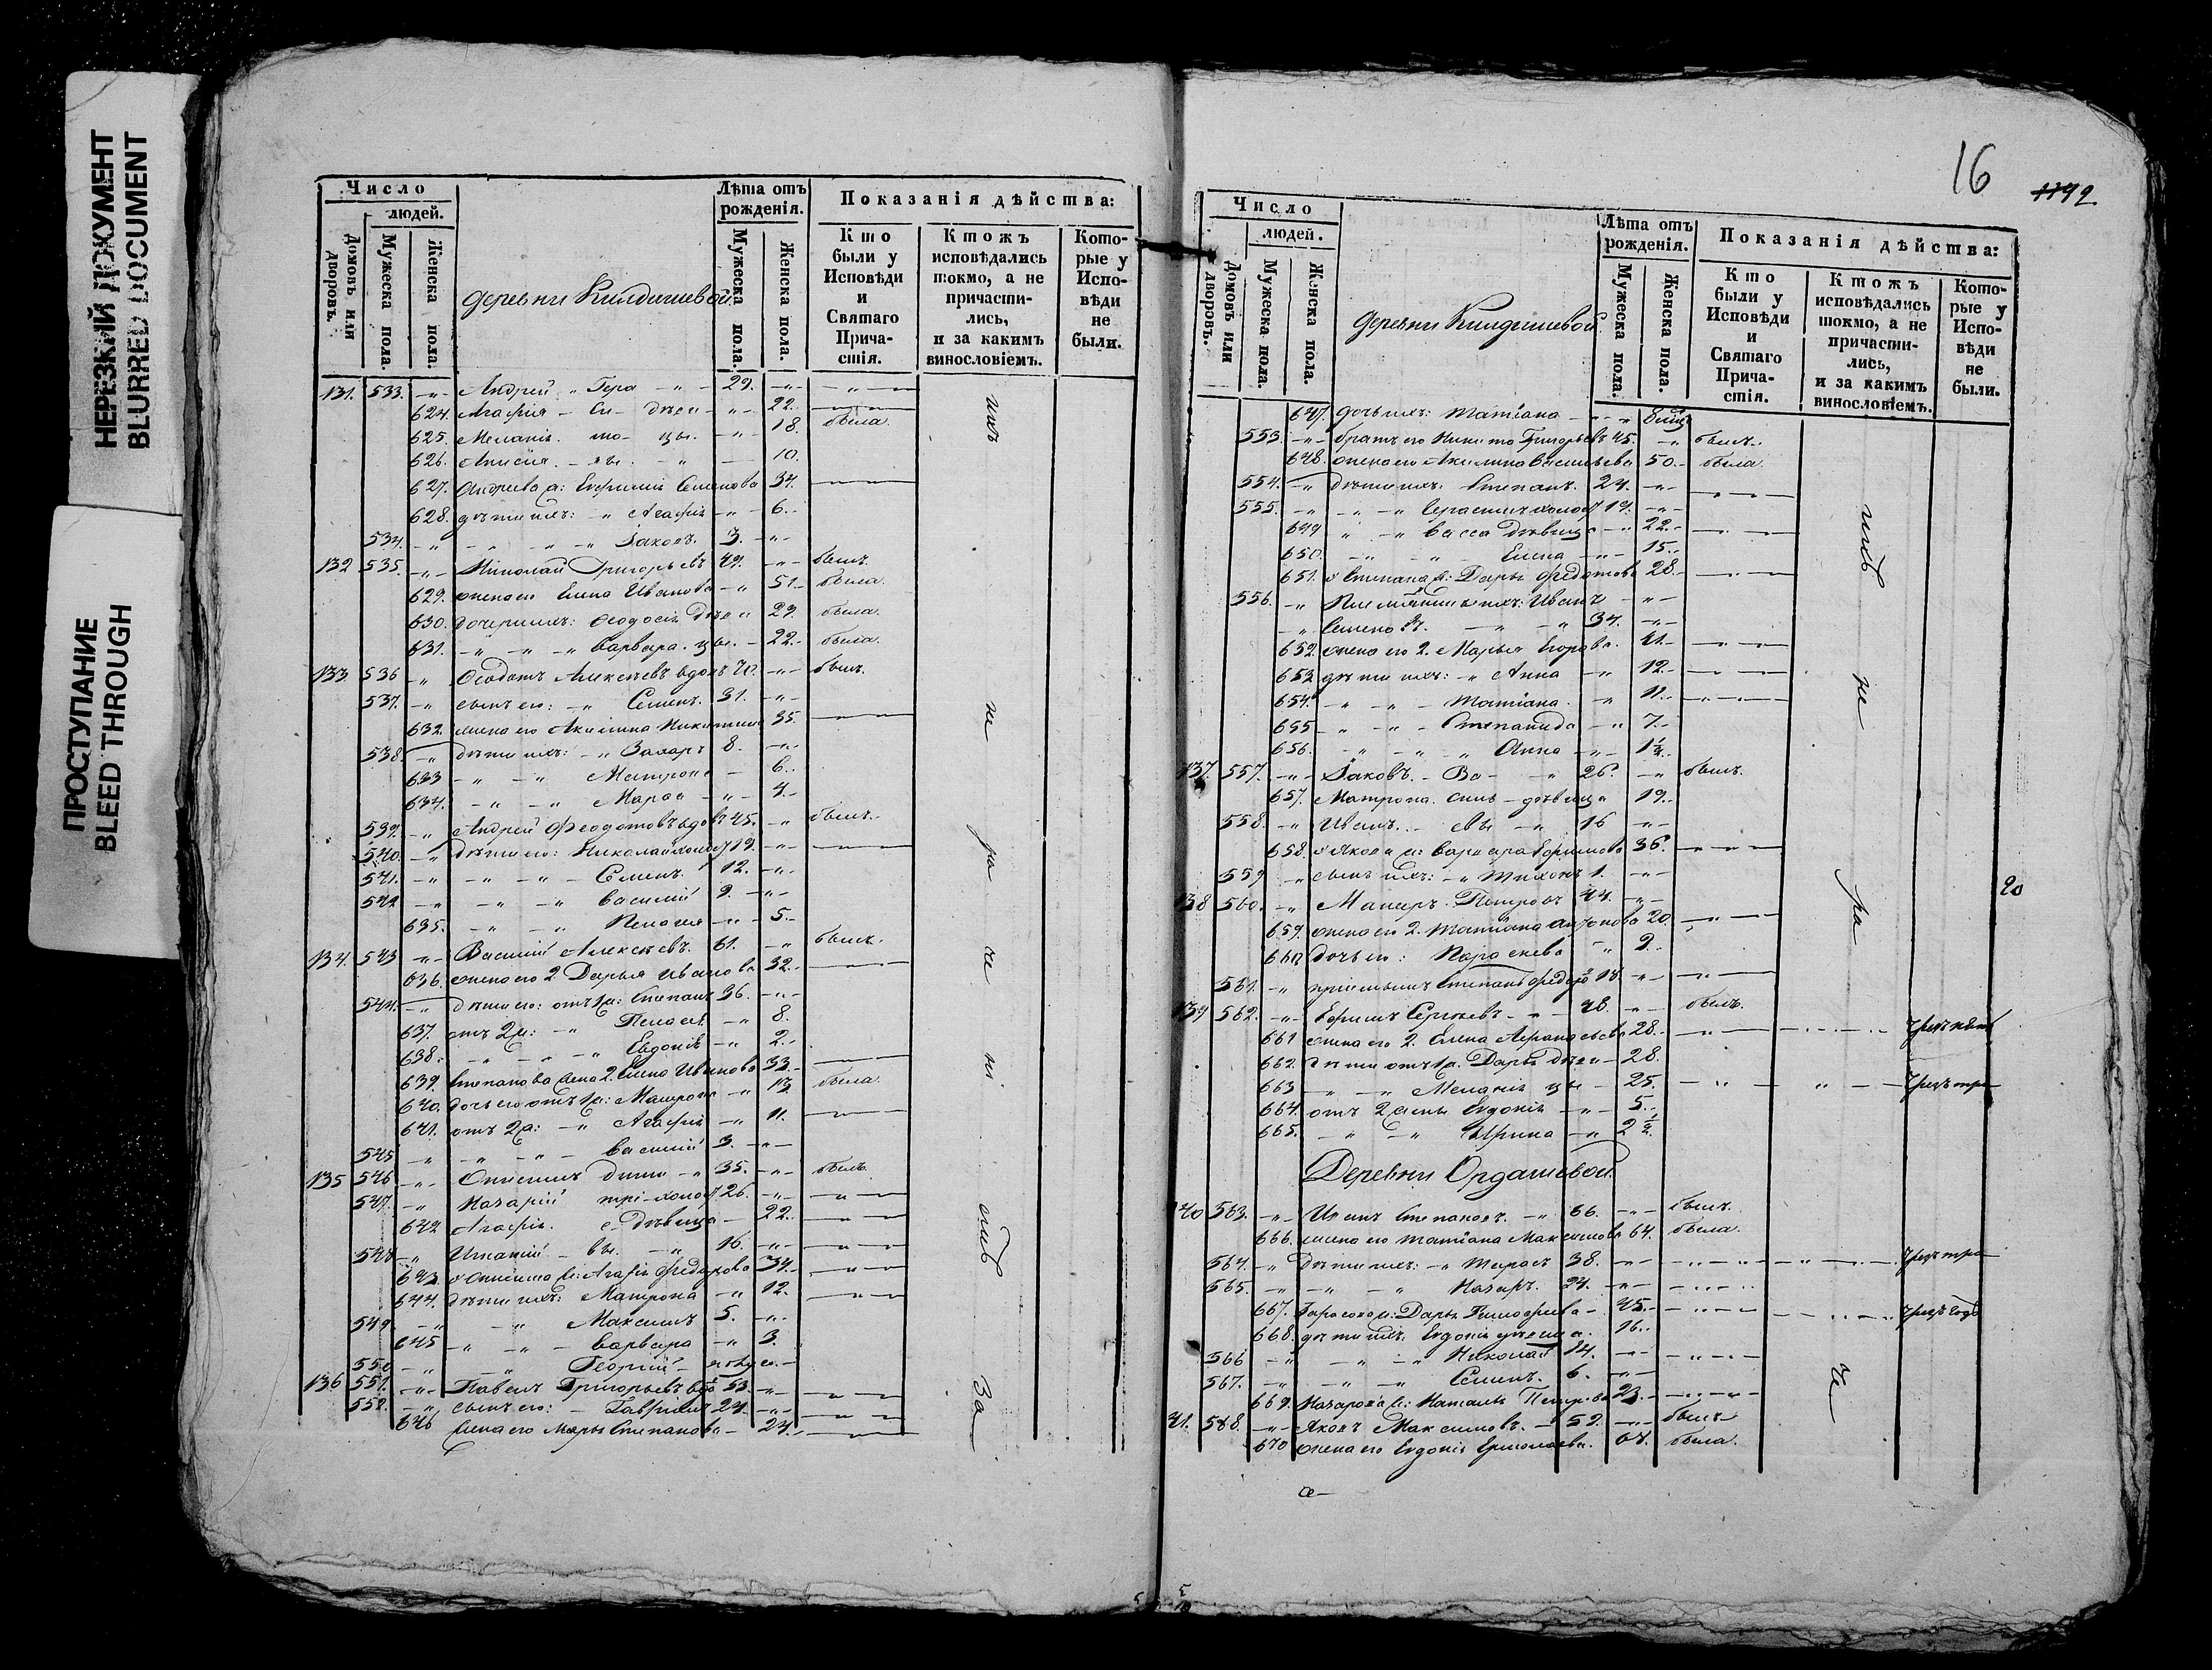 НЕРЕЗКИЙ ДОКУМЕНТ
BLURRED DOCUMENT
ПРОСТУПАНИЕ
BLEED THROUGH
Число
людей.
Домовъ или дворовъ.
Мужеска пола.
Женска пола.
Лѣта отъ рожденія.
Мужеска пола.
Женска пола.
Показанія дѣйства:
Кто были у Исповѣди и Святаго Причастія.
Ктожъ исповѣдались токмо, а не причастились, и за какимъ винословіемъ.
Которые у Исповѣди не были.
деревни Килдишевой.
131. 533. -„- Андрей „ Гера -„- 29. -„-
624. Агафія - си- дѣви -„- 22.
625. Меланія. - цы. -„- 18. была
626. Анисія. 10.
627. Андреева ж: Ефимия Семенова 34.
628. дѣти ихъ: „ Агафія -„- 6.
534. -„- Іаковъ. 3. -„-
132 535. -„- Николай Григорьевъ 49. -„- былъ.
629. жена его Елена Иванова -„ 51. была
630. дочери ихъ: Феодосія Дѣви 29. была.
631. -„- -„- Варвара. цы. - 22. была
133. 536 „ Феодотъ Алексѣевъ вдовъ 70. -„- былъ.
537. -„ сынъ его: -„ Семенъ. 31. -„-
632. жена его Акилина Никитина 35.
538. -„- дѣти ихъ: -„ Захаръ 8. -„-
633 -„- -„ Матрона - 6.
634. -„- -„ Марья -„- 4.
539. -„ Андрей Феодотовъ вдовъ 45. -„ былъ.
540. -„ дѣти его: Николай холост 19. -„-
541. -„ -„- -„- Семенъ. 12. -„-
542 -„ -„- -„ Василій 9. -„-
635. -„- -„ Пелагея -„- 5.
134. 543 -„- Василій Алексѣевъ. 61. -„ былъ.
636. жена его 2 Дарья Иванова 32.
544. дѣти его: отъ 1ж: Степанъ 36. -„-
637. отъ 2ж: -„ Пелагея -„ 8.
638. -„- -„ Евдокія -„ 2.
639. Степанова жена 2. Елена Иванова 33.
640. дочь его отъ 1ж: Матрона -„ 13. была.
641. отъ 2ж: -„ Агафія -„ 11.
545 -„ -„- Василій 3. -„-
135 546 -„- Онисимъ Дми -„ 35. -„- былъ.
547. -„ Назарій трі- холост 26. -„-
642 Агафія. е- дѣвица - 22.
548 -„ Игнатій - вы. -„ 16. -„-
643. Онисима ж: Агафія Федорова 34.
644. дѣти ихъ: Матрона -„ 12.
549. -„ -„ Максимъ 5. -„-
645 -„ -„ Варвара -„ 3.
550 -„ -„ Георгій
136 551. -„- Павелъ Григорьевъ вдо 53. -„
552. -„ сынъ его: - Гавриилъ 24. -„-
646 жена его Марья Степанова - 24.
ихъ не ра че ні емъ За
16
1192
Число
людей.
Домовъ или дворовъ.
Мужеска пола.
Женска пола.
Лѣта отъ рожденія.
Мужеска пола.
Женска пола.
Показанія дѣйства:
Кто были у Исповѣди и Святаго Причастія.
Ктожъ исповѣдались токмо, а не причастились, и за какимъ винословіемъ.
Которые у Исповѣди не были.
деревни Килдишевой
647. дочь ихъ: Татіана -„
553. -„- братъ его Никита Григорьевъ 45. -„ былъ.
648. жена его Акилина Васильева 50. была
554. -„ дѣти ихъ: Степанъ. 24. -„-
555. -„ -„ -„ Герасимъ холост 19. -„-
649 „ -„ Васса дѣвица -„ 22.
650. -„ „ Елена -„- 15.
651. Степана ж: Дарья Федотова 28.
556. -„ Племянникъ ихъ: Иванъ -„-
-„ Семеновъ. -„- -„ 34. -„-
652. жена его 2. Марья Егорова. 41.
653 дѣти ихъ: -„ Анна -„ 12.
654. -„ -„ - Татіана. -„ 11.
655 -„ -„ - Степанида -„ 7.
656. -„ -„ „ Анна -„- 1½.
137. 557. -„- Іаковъ. - Ва- -„ 26. -„ былъ.
657. Матрона. силь- дѣвица 19.
558. -„ Иванъ. евы -„ 16 -„-
658. Якова ж: Варвара Ефимова 36.
559 -„ сынъ ихъ: -„ Тихонъ 1. -„-
138 560. -„ Макаръ Петровъ 44. -„-
659. жена его 2. Татіана Антонова 20.
660 дочь его: Параскева -„ 9.
561. -„ Степанъ Федоро 18. -„-
139 562. -„ Ефимъ Сергѣевъ -„- 48. -„ былъ.
661 жена его 2. Елена Афанасьева 28.
662. дѣти отъ 1ж. Дарья дѣви- 28.
663 „ -„ Меланія цы - 25. Чрезъ три
664. отъ 2 жены Евдокія -„- 5.
665. -„ -„ Ирина -„ 2½.
20
Деревни Ордашевой
140 563. -„- Иванъ Степановъ. -„ 66. -„- былъ.
666. жена его Татіана Максимова 64. была.
564. -„ Дѣти ихъ: -„ Тарасъ 38. -„- Чрезъ три
565. -„ -„ -„ Назаръ. 24. -„-
667. Тарасова ж: Дарья Тимофеева - 45. Чрезъ годъ
668. дѣти ихъ. Евдокія дѣвица. 16.
566 -„ -„ -„ Николай 14. -„-
567. -„ -„ -„ Семенъ. 6. -„-
669. Назарова ж: Наталья Петрова 23.
141. 568. -„- Яковъ Максимовъ. - 59. -„- былъ
670 жена его Евдокія Ермолаева. 67. была.
ихъ не ра че